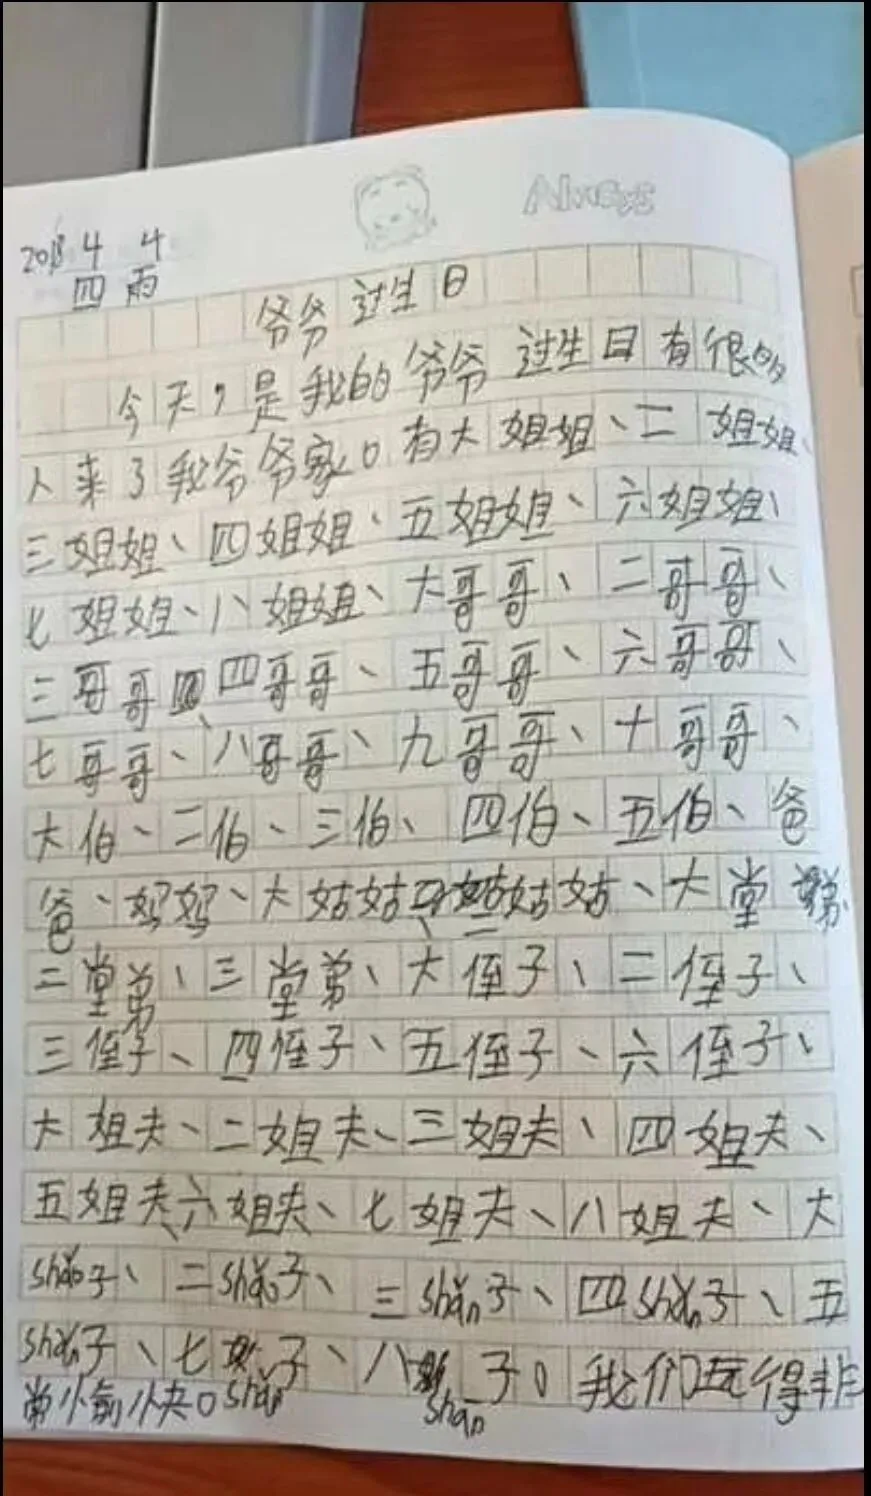 Always
2018 4 4
四 雨
爷爷过生日
今天，是我的爷爷过生日有很多
人来了我爷爷家。有大姐姐、二姐姐、
三姐姐、四姐姐、五姐姐、六姐姐、
七姐姐、八姐姐、大哥哥、二哥哥、
三哥哥、四哥哥、五哥哥、六哥哥、
七哥哥、八哥哥、九哥哥、十哥哥、
大伯、二伯、三伯、四伯、五伯、爸
爸、妈妈、大姑姑、二姑姑、大堂弟、
二堂弟、三堂弟、大侄子、二侄子、
三侄子、四侄子、五侄子、六侄子、
大姐夫、二姐夫、三姐夫、四姐夫、
五姐夫、六姐夫、七姐夫、八姐夫、大
shǎo子、二shǎo子、三shǎn子、四shǎn子、五
shǎn子、七子、八子。我们玩得非
常愉快。shǎn shǎn